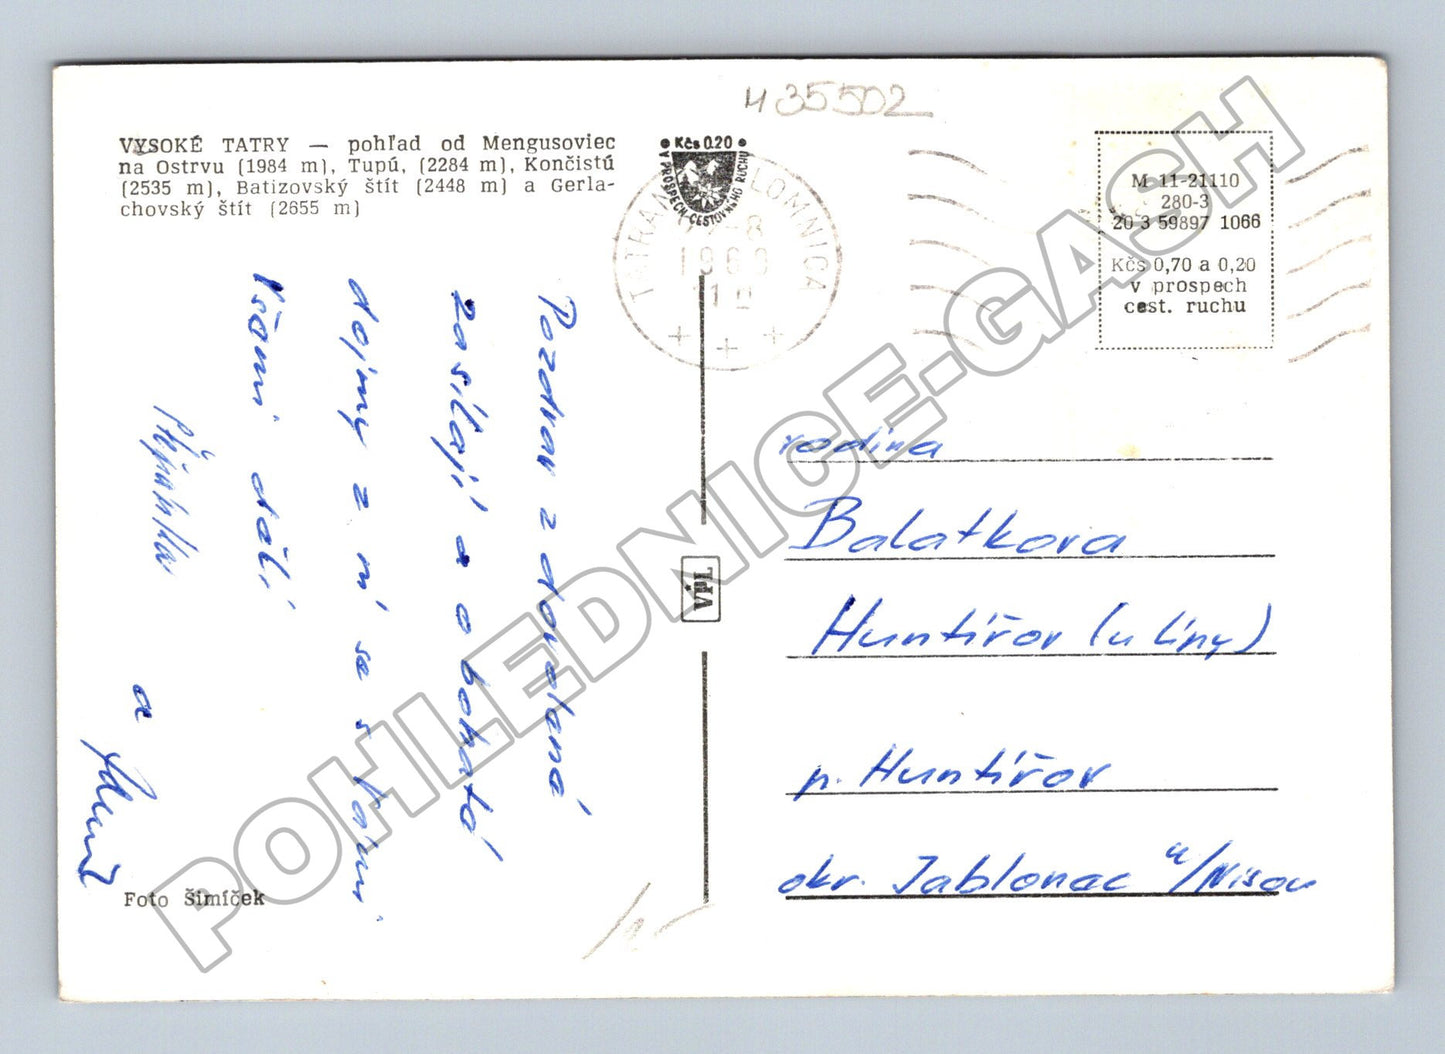 435502
VYSOKÉ TATRY — pohľad od Mengusoviec
na Ostrvu (1984 m), Tupú, (2284 m), Končistú
(2535 m), Batizovský štít (2448 m) a Gerla-
chovský štít (2655 m)
Kčs 0.20
V PROSPECH CESTOVNÉHO RUCHU
LOMNICA
M 11-21110
280-3
20 3 59897 1066
Kčs 0,70 a 0,20
v prospech
cest. ruchu
Pozdrav z dovolené
zasílají a o bohaté
dojmy z ní se s Vámi
všemi dělí
a
rodina
Balatkova
Huntířov (u Lípy)
p. Huntířov
okr. Jablonec n/Nisou
VPL
Foto Šimíček
POHLEDNICE-GASH